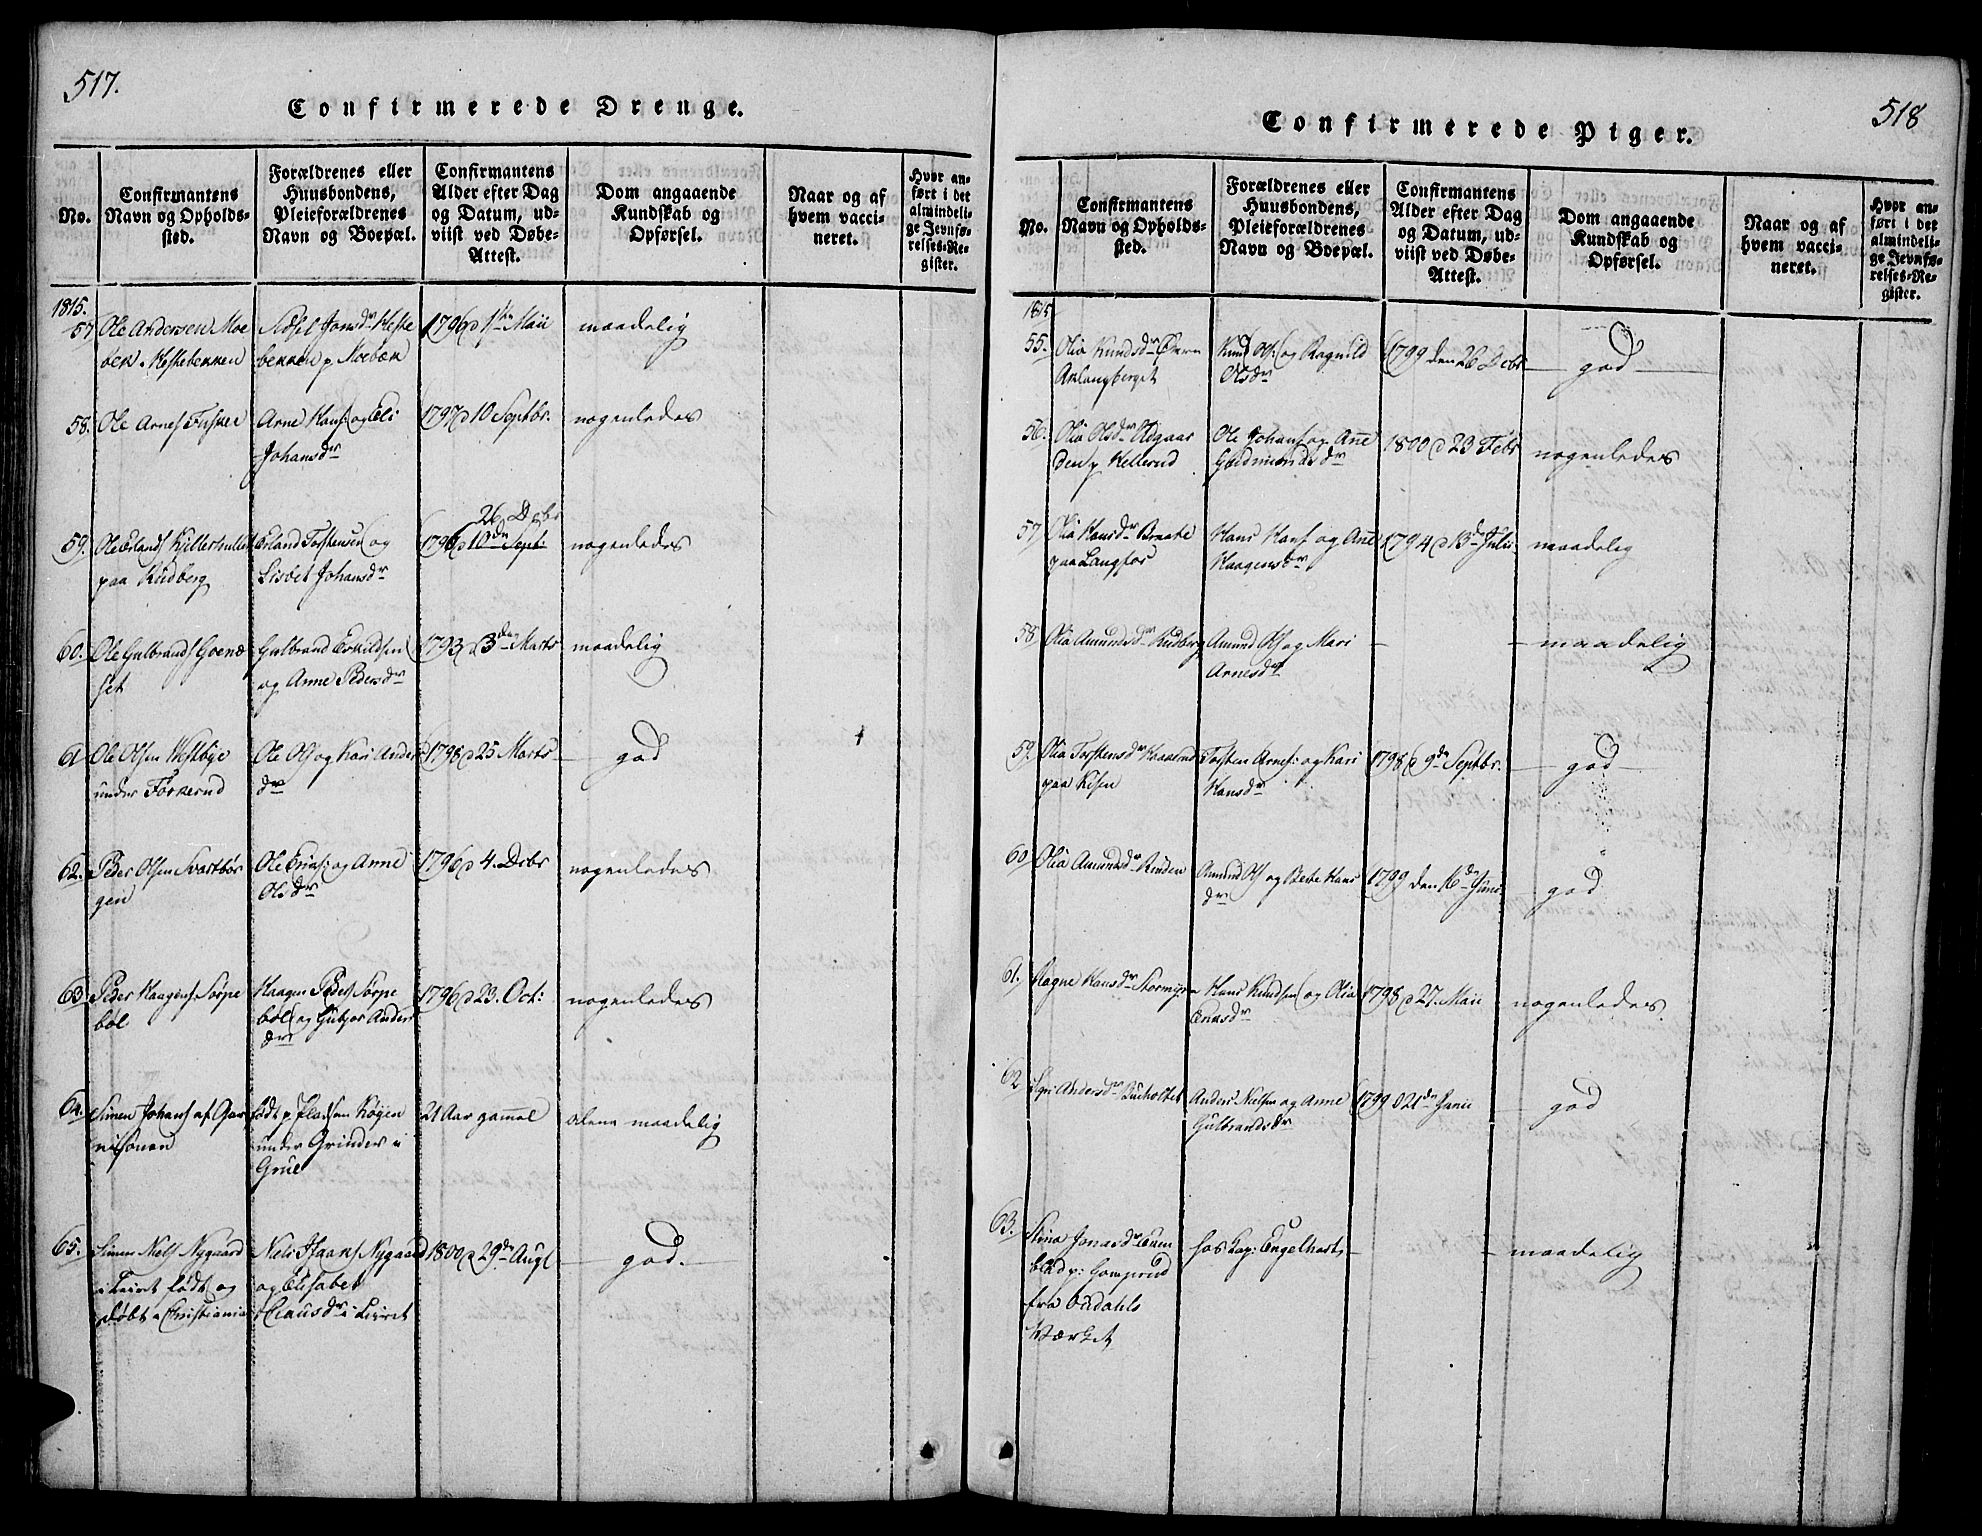 517.
Confirmerede Drenge.
No.
Confirmantens
Navn og Opholds-
sted.
Forældrenes eller
Huusbondens,
Pleieforældrenes
Navn og Boepæl.
Confirmantens
Alder efter Dag
og Datum, ud-
viist ved Døbe-
Attest.
Dom angaaende
Kundskab og
Opførsel.
Naar og af
hvem vacci-
neret.
Hvor an-
ført i det
almindeli-
ge Jevnfø-
relses-Re-
gister.
1815.
57 Ole Andersen Moe
Jonsdr Heske
1796 d 1ste Maii
maadelig
58. Ole Arnes
Arne Hans: og Eli
Johansdr
1797 d 10 Septbr.
nogenledes
26 Decbr
59. Ole Erlands
paa Rudberg
Erland Torstensen og
Lisbet Johansdr
1796 d 10de Sept:
nogenledes
60. Ole Gulbrands
set
Gulbrand Eskildsen
og Anne Pedersdr
1793 d 3de Marts
maadelig
61 Ole Olsen Westbye
under
Ole Ols og Kari Anders
dr
1798 d 25 Marts
god
62. Peder Olsen Svartbør
gen
Ole og Anne
Olsdr
1796 d 4. Decbr
nogenledes
63. Peder Haagens Sørpe
bøl
Haagen Peders Sørpe
bøl og Gubjør Anders
dr
1796 d 23. Oct:
nogenledes
64. Simen Johans af Gar
nisonen
født p. Pladsen Køgen
under Grinder i
Grue
21 Aar gammel
alene maadelig
65. Simen Niels Nygaard
født og
døbt i Christiania
Niels Isaacs Nygaard
og Elisabet
Clausdr i
1800 d 29de Augs
god.
518
Confirmerede Piger.
No.
Confirmantens
Navn og Opholds-
sted.
Forældrenes eller
Huusbondens,
Pleieforældrenes
Navn og Boepæl.
Confirmantens
Alder efter Dag
og Datum, ud-
viist ved Døbe-
Attest.
Dom angaaende
Kundskab og
Opførsel.
Naar og af
hvem vacci-
neret.
Hvor an-
ført i det
almindeli-
ge Jevnfø-
relses-Re-
gister.
1815
55. Olia Knudsdr
Knud Ols: og Ragnild
Olsdr
1799 den 26 Decbr
god
56. Olia Olsdr
den p. Kellerud
Ole Johans og Ane
Gudmundsdr
1800 d 23 Febr
nogenledes
57 Olia Hansdr Braate
paa Langfos
Hans Hans og Ane
Haagensdr
1794 d 13de Julii
maadelig
58 Olia Amundsdr Rudberg
Amund Ols og Mari
Arnesdr
maadelig
59. Olia Torstensdr
paa Risen
Torsten Arnes: og Kari
Hansdr
1798 d 9de Septbr.
god
60 Olia Amundsdr
Amund Ols og Berte Hans
dr
1799 den 16de Junii
god
61. Ragne Hansdr
Hans Knudsen og Olia
1798 d 27. Maii
nogenledes
62 Andersdr
Anders Nielsen og Anne
Gulbrandsdr
1799 d 21de Junii
god
63. Stina Jonasdr
fra Odahls
Værket
hos Cap: Engelhart
maadelig